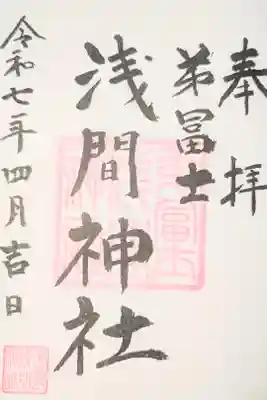 奉拝
弟冨士
浅間神社
令和七年四月吉日